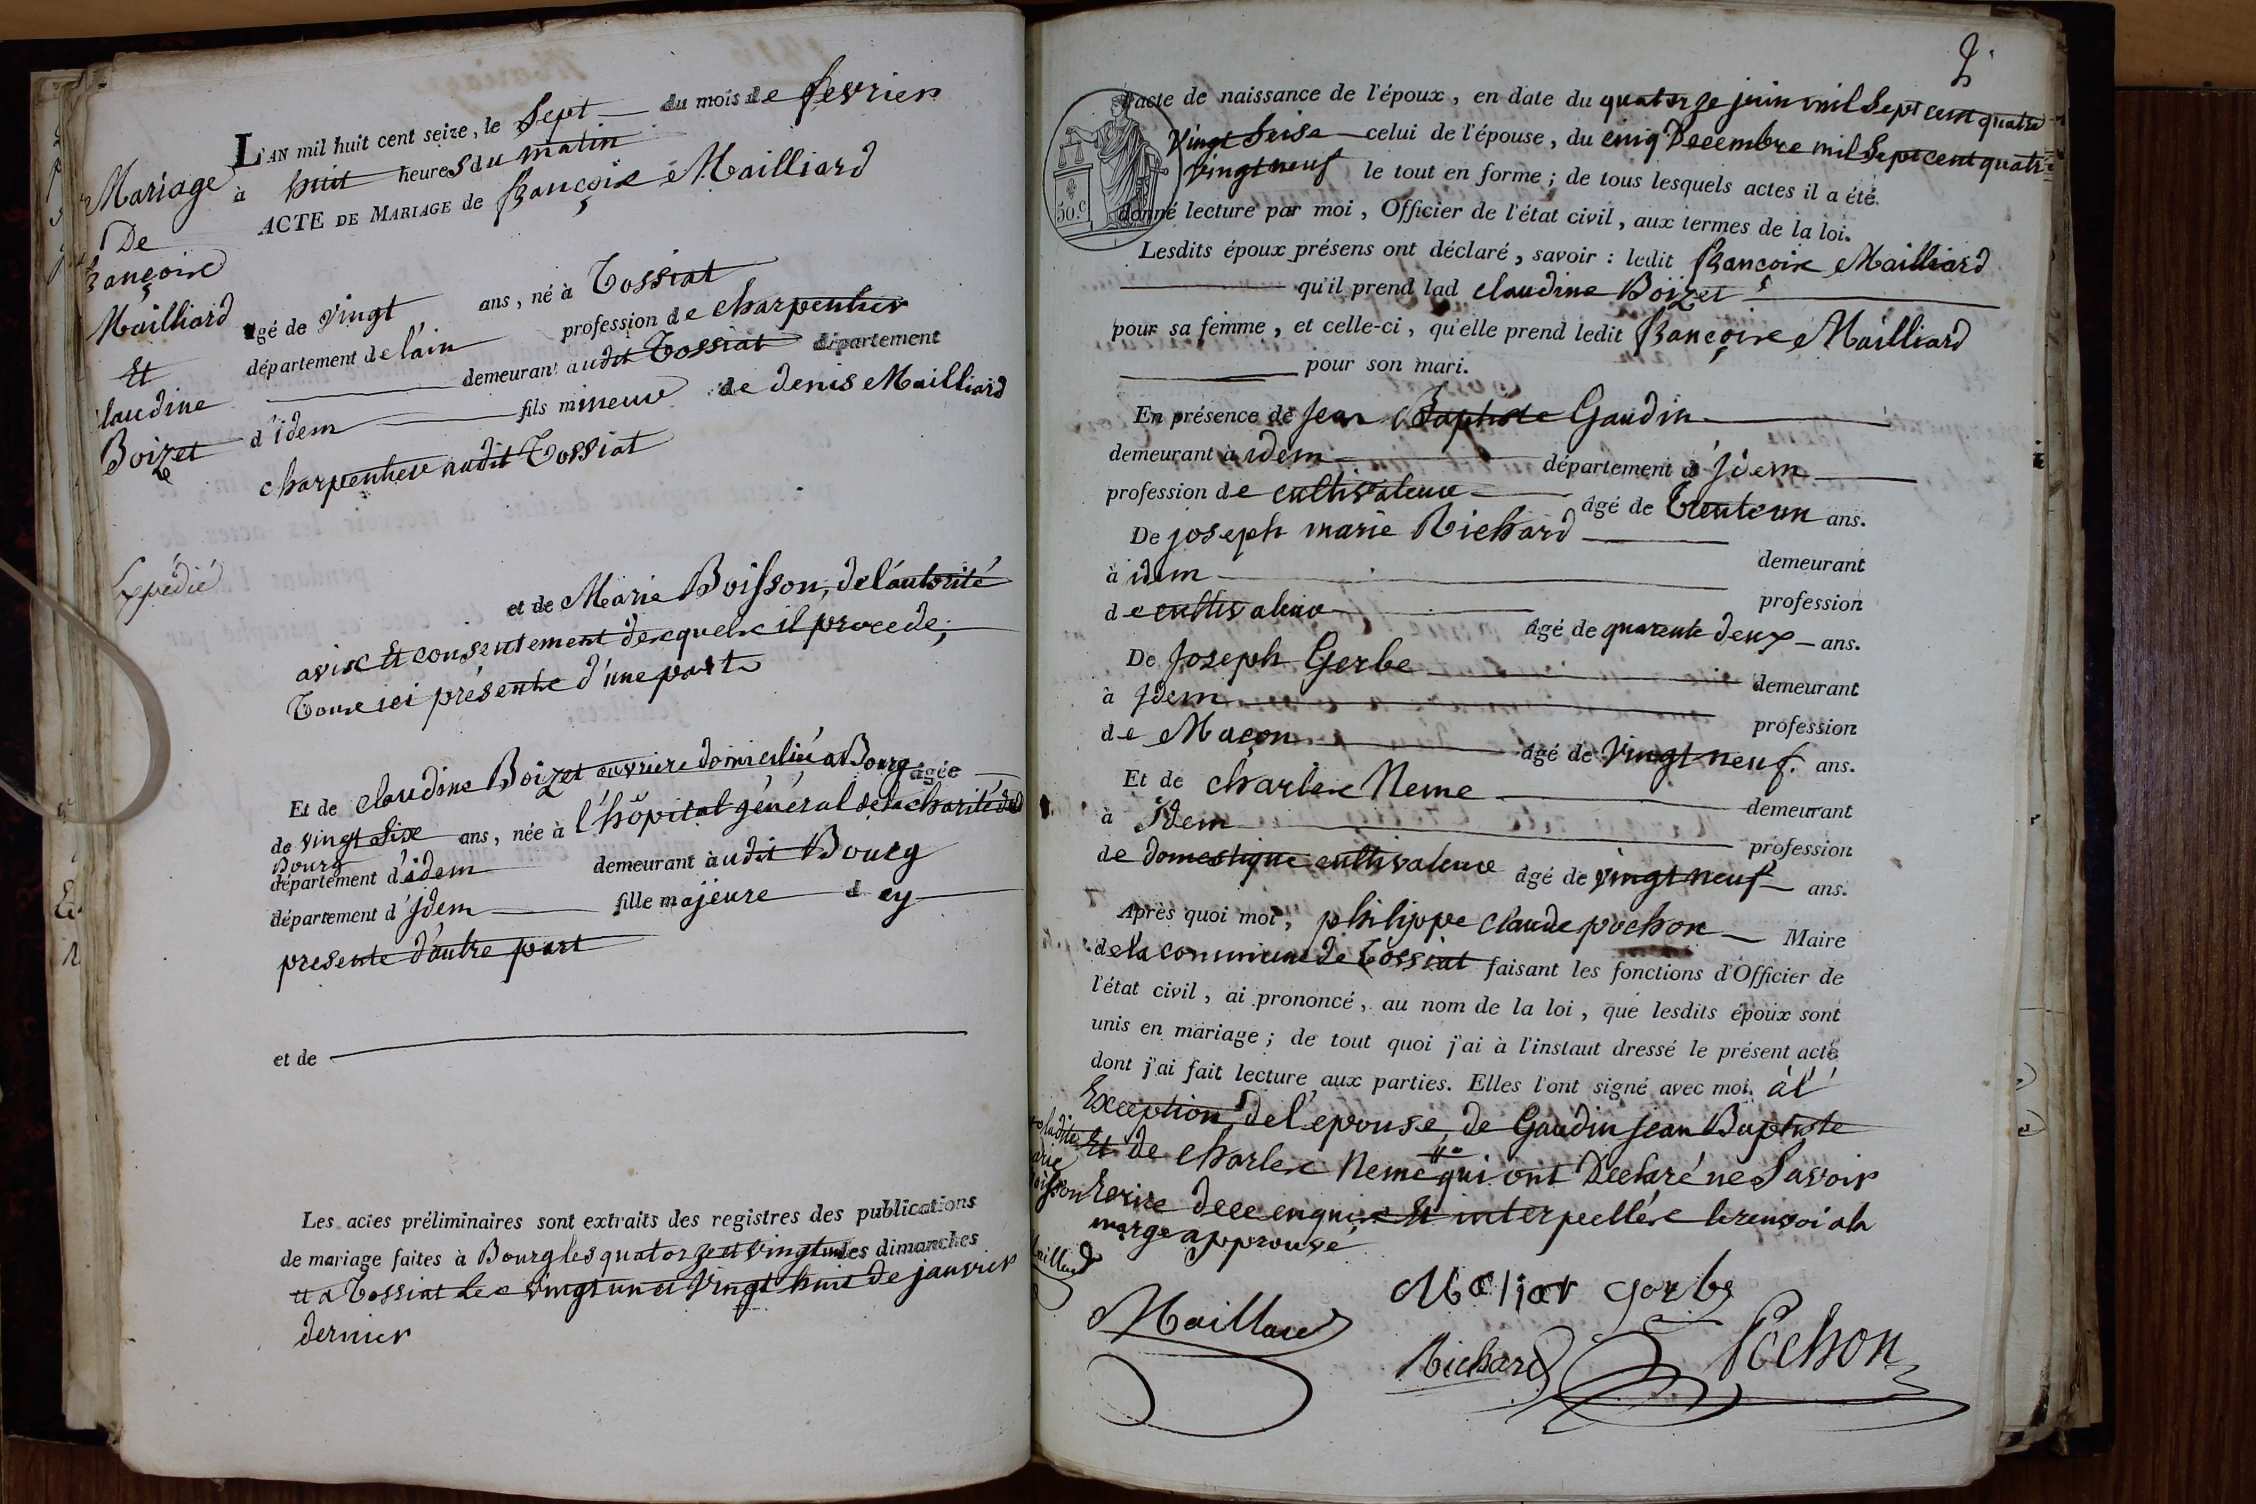 Mariage
De
françois
Mailliard
Et
laudine
Boizet
Expédié
L'AN mil huit cent seize, le Sept du mois de fevrier
à huit heures du matin
ACTE DE MARIAGE de françois Mailliard
agé de vingt ans, né à Tossiat
département de l'ain profession de charpentier
demeurant audit Tossiat département
d'idem fils mineur de denis Mailliard
charpentier audit Tossiat
et de Marie Boisson, de l'autorité
avis Et consentement desquels il procede,
Tous ici présents d'une part
Et de claudine Boizet ouvriere domiciliée a Bourg agée
de vingt six ans, née à l'hôpital général de la charité dud
Bourg
département d'idem demeurant audit Bourg
département d'Idem fille majeure d cy
presente d'autre part
et de
Les actes préliminaires sont extraits des registres des publications
de mariage faites à Bourg les quatorze et vingt un les dimanches
et a Tossiat les vingt un et vingt huit de janvier
dernier
2
50 c
l'acte de naissance de l'époux, en date du quatorze juin mil Sept cent quatre
vingt Seise celui de l'épouse, du cinq Decembre mil Sept cent quatre
vingt neuf le tout en forme; de tous lesquels actes il a été
donné lecture par moi, Officier de l'état civil, aux termes de la loi.
Lesdits époux présens ont déclaré, savoir: ledit françois Mailliard
qu'il prend lad claudine Boizet
pour sa femme, et celle-ci, qu'elle prend ledit françois Mailliard
pour son mari.
En présence de jean Baptiste Gaudin
demeurant à idem département d'Idem
profession de cultivateur âgé de trente un ans.
De joseph marie Richard demeurant
à idem profession
de cultivateur âgé de quarente deux ans.
De Joseph Gerbe demeurant
à Idem profession
de Maçon âgé de vingt neuf ans.
Et de charles Neme demeurant
à Idem profession
de domestique cultivateur âgé de vingt neuf ans.
Après quoi moi, philippe claude pochon Maire
de la commune de Tossiat faisant les fonctions d'Officier de
l'état civil, ai prononcé, au nom de la loi, que lesdits époux sont
unis en mariage; de tout quoi j'ai à l'instant dressé le présent acte
dont j'ai fait lecture aux parties. Elles l'ont signé avec moi, à l'
Exception de l'epouse, de Gaudin jean Baptiste
Et de charles Neme qui ont Déclaré ne Savoir
Ecrire de ce enquis Et interpellés le renvoi a la
marge approuvé
ladite
arie
oisson
aillard
Maliar gerbe
Maillard
Richard
Pochon